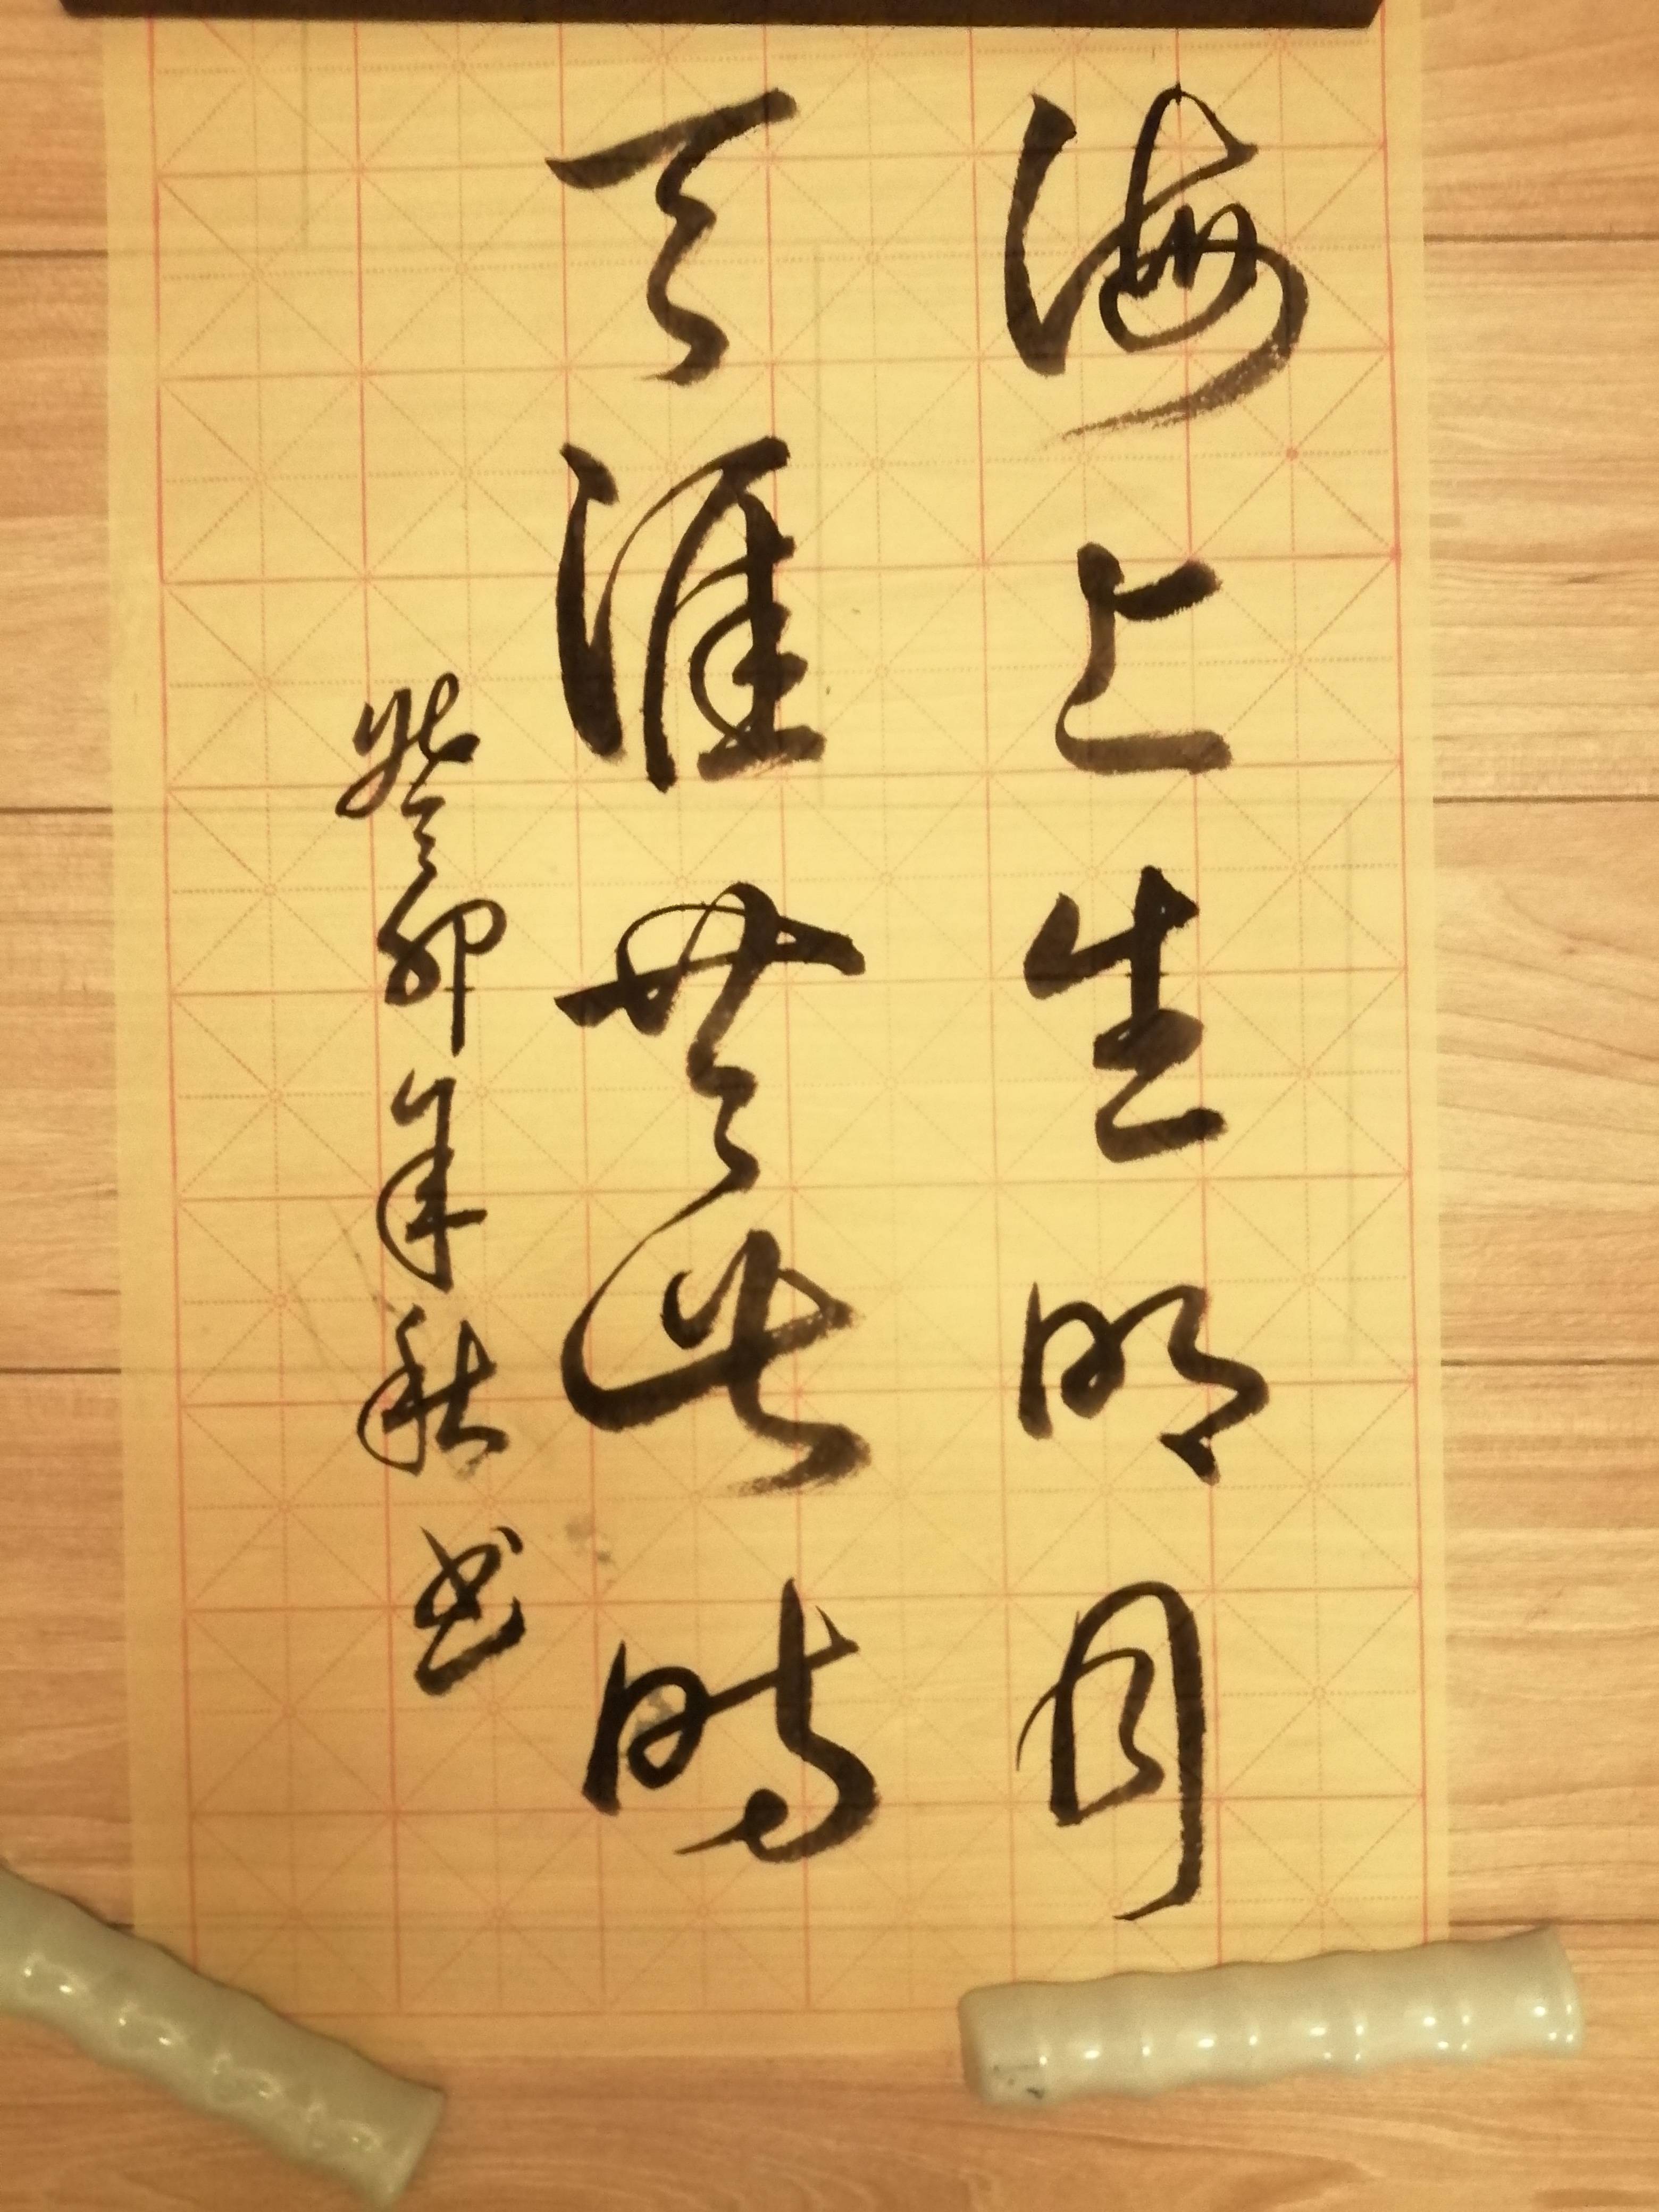 海上生明月
天涯共此時
癸卯年秋書